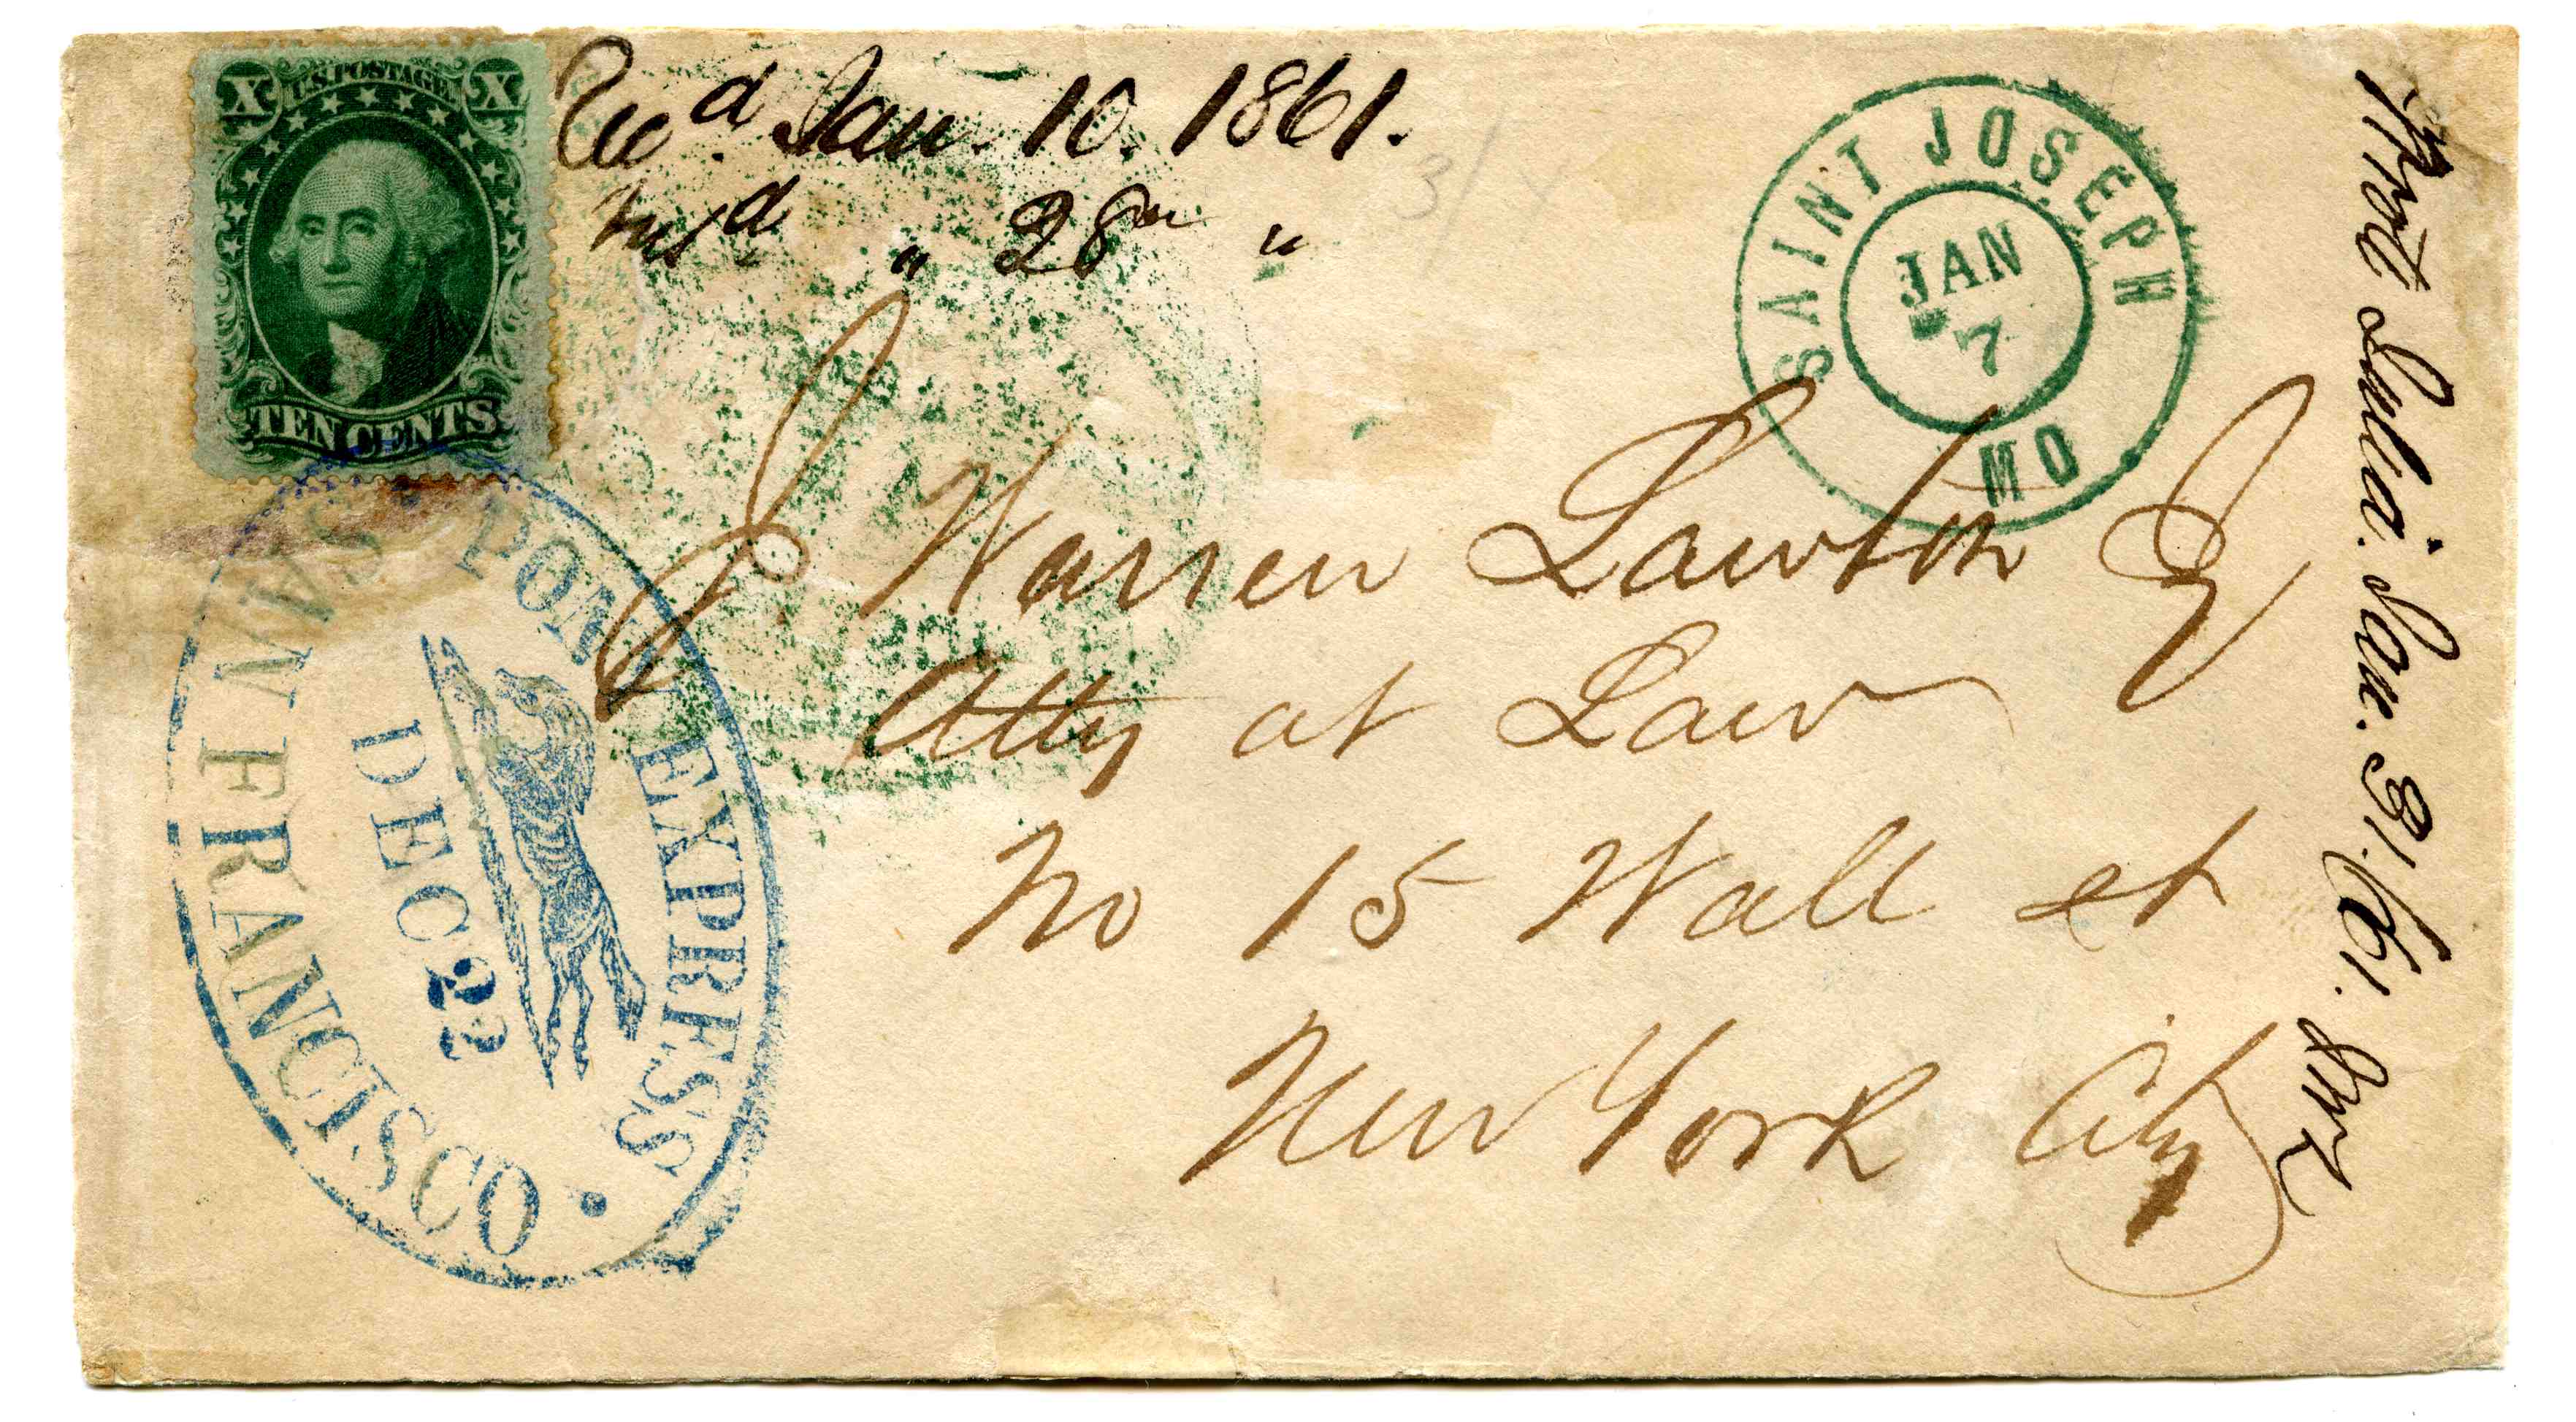 X U.S. POSTAGE X
TEN CENTS
Recd. Jan. 10. 1861.
" 28 "
SAINT JOSEPH
JAN
7
MO
PONY EXPRESS
SAN FRANCISCO
DEC 22
J. Warren Lawton
Atty at Law
No 15 Wall st
New York City
Wrote Julia. Jan. 31/61.